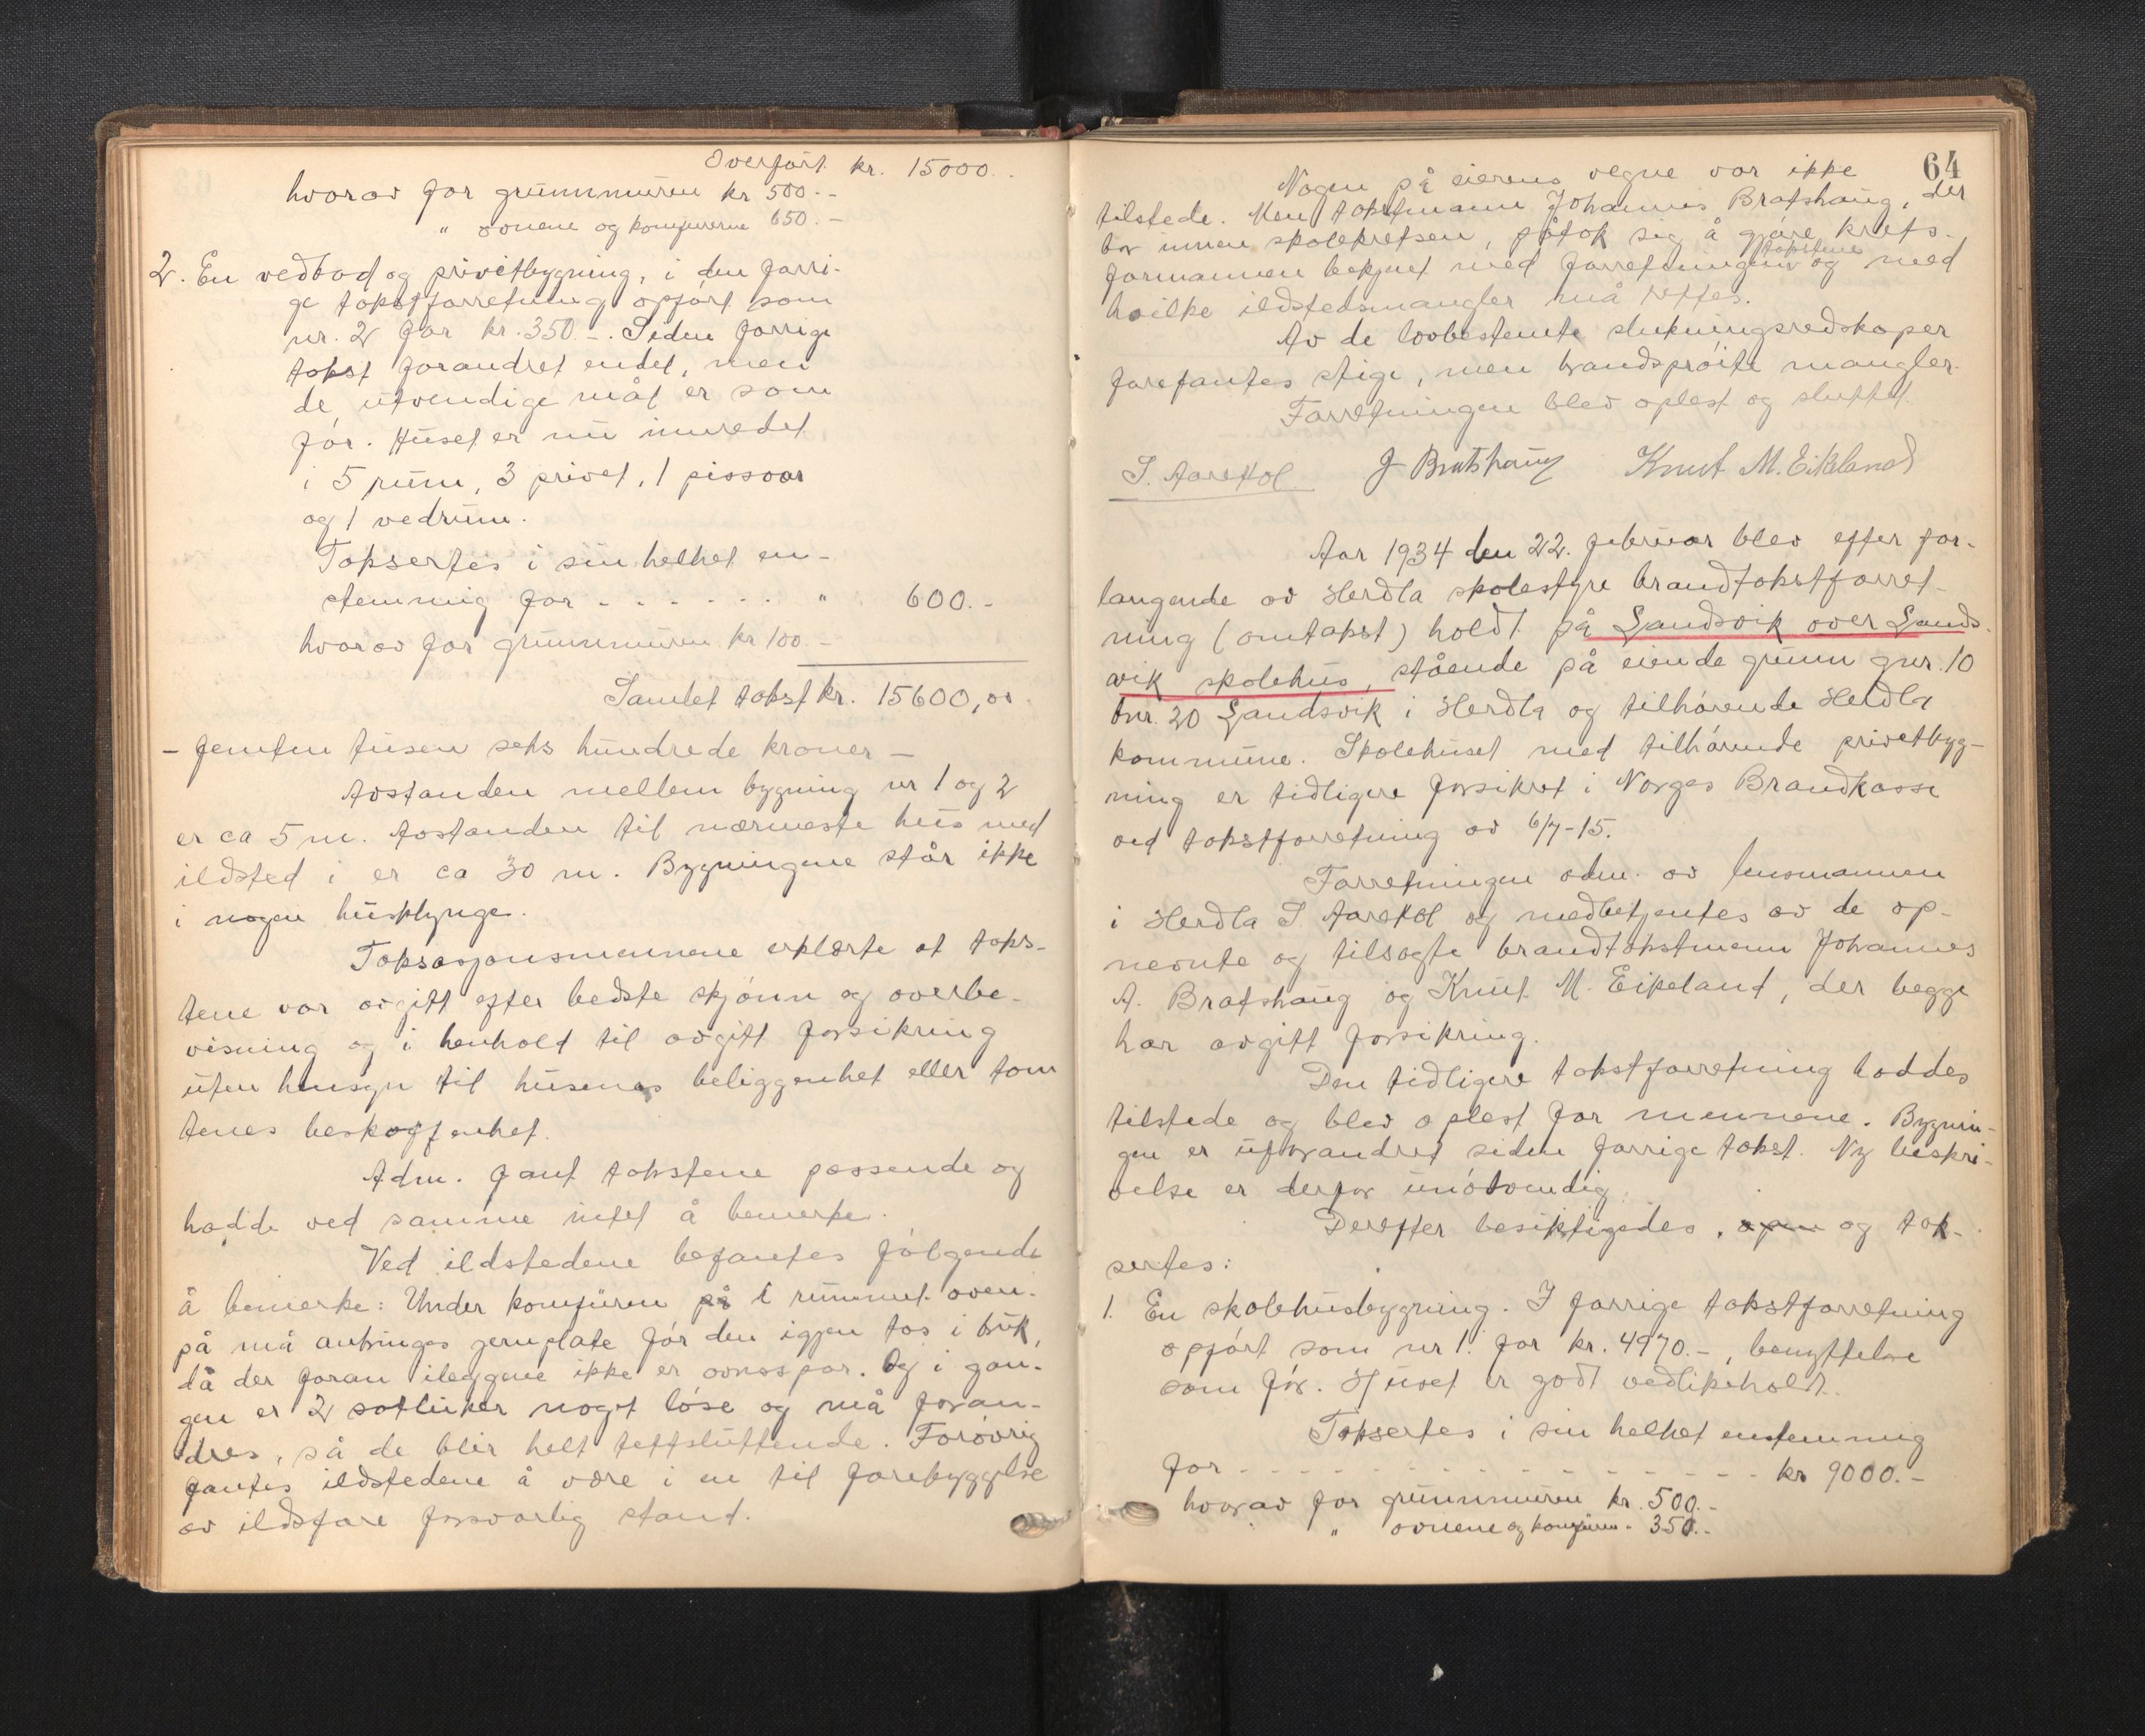 Overført kr. 15000.-
hvorav for grunnmuren kr 500.-
" ovnene og komfurerne 650.-
2. En vedbod og privetbygning, i den forri-
ge takstforretning opført som
nr. 2 for kr. 350.-. Siden forrige
takst forandret endel, men
de utvendige mål er som
før. Huset er nu inredet
i 5 rum, 3 privet, 1 pissoar
og 1 vedrum.
Taksertes i sin helhet en-
stemmig for - - - - - - " 600.-
hvorav for grunnmuren kr 100.-
Samlet takst kr. 15600,00
- femten tusen seks hundrede kroner -
Avstanden mellem bygning nr 1 og 2
er ca 5 m. Avstanden til nærmeste hus med
ildsted i er ca 30 m. Bygningene står ikke
i nogen husklynge.
Taksasjonsmennene erklærte at taks-
tene var avgitt efter bedste skjønn og overbe-
visning og i henhold til avgitt forsikring
uten hensyn til husenes beliggenhet eller tom
tenes beskaffenhet.
Adm. fant takstene passende og
hadde ved samme intet å bemerke.
Ved ildstedene befantes følgende
å bemerke: Under komfuren på i rummet oven-
på må anbringes jernplate før den igjen tas i bruk,
då der foran ileggene ikke er ovnsspor. Og i gan-
gen er 2 sotluker noget løse og må foran-
dres, så de blir helt tettsluttende. Forøvrig
fantes ildstedene å være i en til forebyggelse
av ildsfare forsvarlig stand.
64
Nogen på eierens vegne var ikke
tilstede. Men takstmann Johannes Bratshaug, der
bor innen skolekretsen, påtok sig å gjøre krets-
takstene
formannen bekjent med forretningen og med
hvilke ildstedsmangler må rettes.
Av de lovbestemte slukningsredskaper
forefantes stige, men brandsprøite mangler.
Forretningen blev oplest og sluttet.
S. Aarskol J Bratshaug Knut M. Eikeland
Aar 1934 den 22. februar blev efter for-
langende av Herdla skolestyre brandtakstforret-
ning (omtakst) holdt på Landsvik over Lands-
vik skolehus, stående på eiende grunn gnr. 10
bnr. 20 Landsvik i Herdla og tilhørende Herdla
kommune. Skolehuset med tilhørende privetbyg-
ning er tidligere forsikret i Norges Brandkasse
ved takstforretning av 6/7-15.
Forretningen adm. av lensmannen
i Herdla S. Aarskol og medbetjentes av de op-
nevnte og tilsagte brandtakstmenn Johannes
A. Bratshaug og Knut M. Eikeland, der begge
har avgitt forsikring.
Den tidligere takstforretning haddes
tilstede og blev oplest for mennene. Bygnin-
gen er uforandret siden forrige takst. Ny beskri-
velse er derfor unødvendig.
Derefter besiktigedes, og tak-
sertes:
1. En skolehusbygning. I forrige takstforretning
opført som nr 1. for kr. 4970.-, benyttelse
som før. Huset er godt vedlikeholdt.
Taksertes i sin helhet enstemmig
for - - - - - - - - - - - - kr 9000.-
hvorav for grunnmuren kr. 500.-
" ovnene og komfuren " 350.-